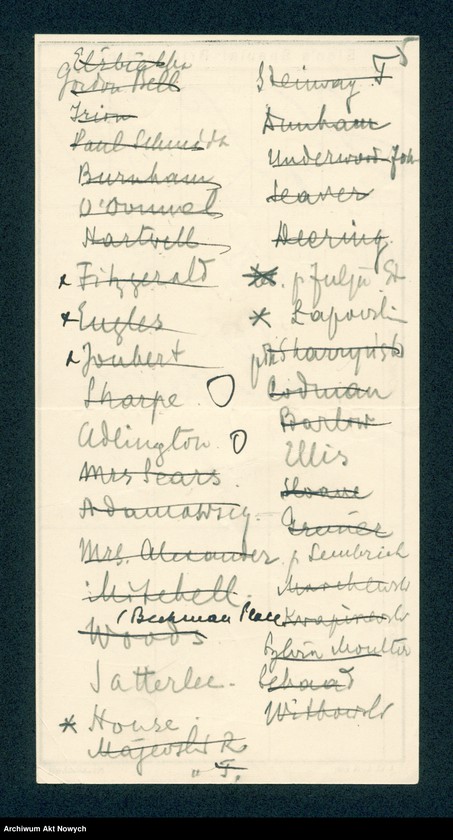 Elżbietka
Gordon Bell
Irion
Paul Schmidt
Burnham
O'Donnel
Hartwell
x Fitzgerald
x Engles
x Joubert
Sharpe
Adlington
Mrs Sears
Adamowscy.
Mrs. Alexander
Mitchell.
1 Beekman Place
Woods
Satterlee.
* House.
Majewski R
" F.
Steinway. F
Dunham
Underwood Joh
Seaver
Deering
p Julju St
* Łapowski
Skarzyński
Codman
Barlow
Ellis
Sloane
Greiner
p Sembrich
Marchlewski
Kwapiszewski
Sylvin Moulton
Schaad
Witkowski
Archiwum Akt Nowych